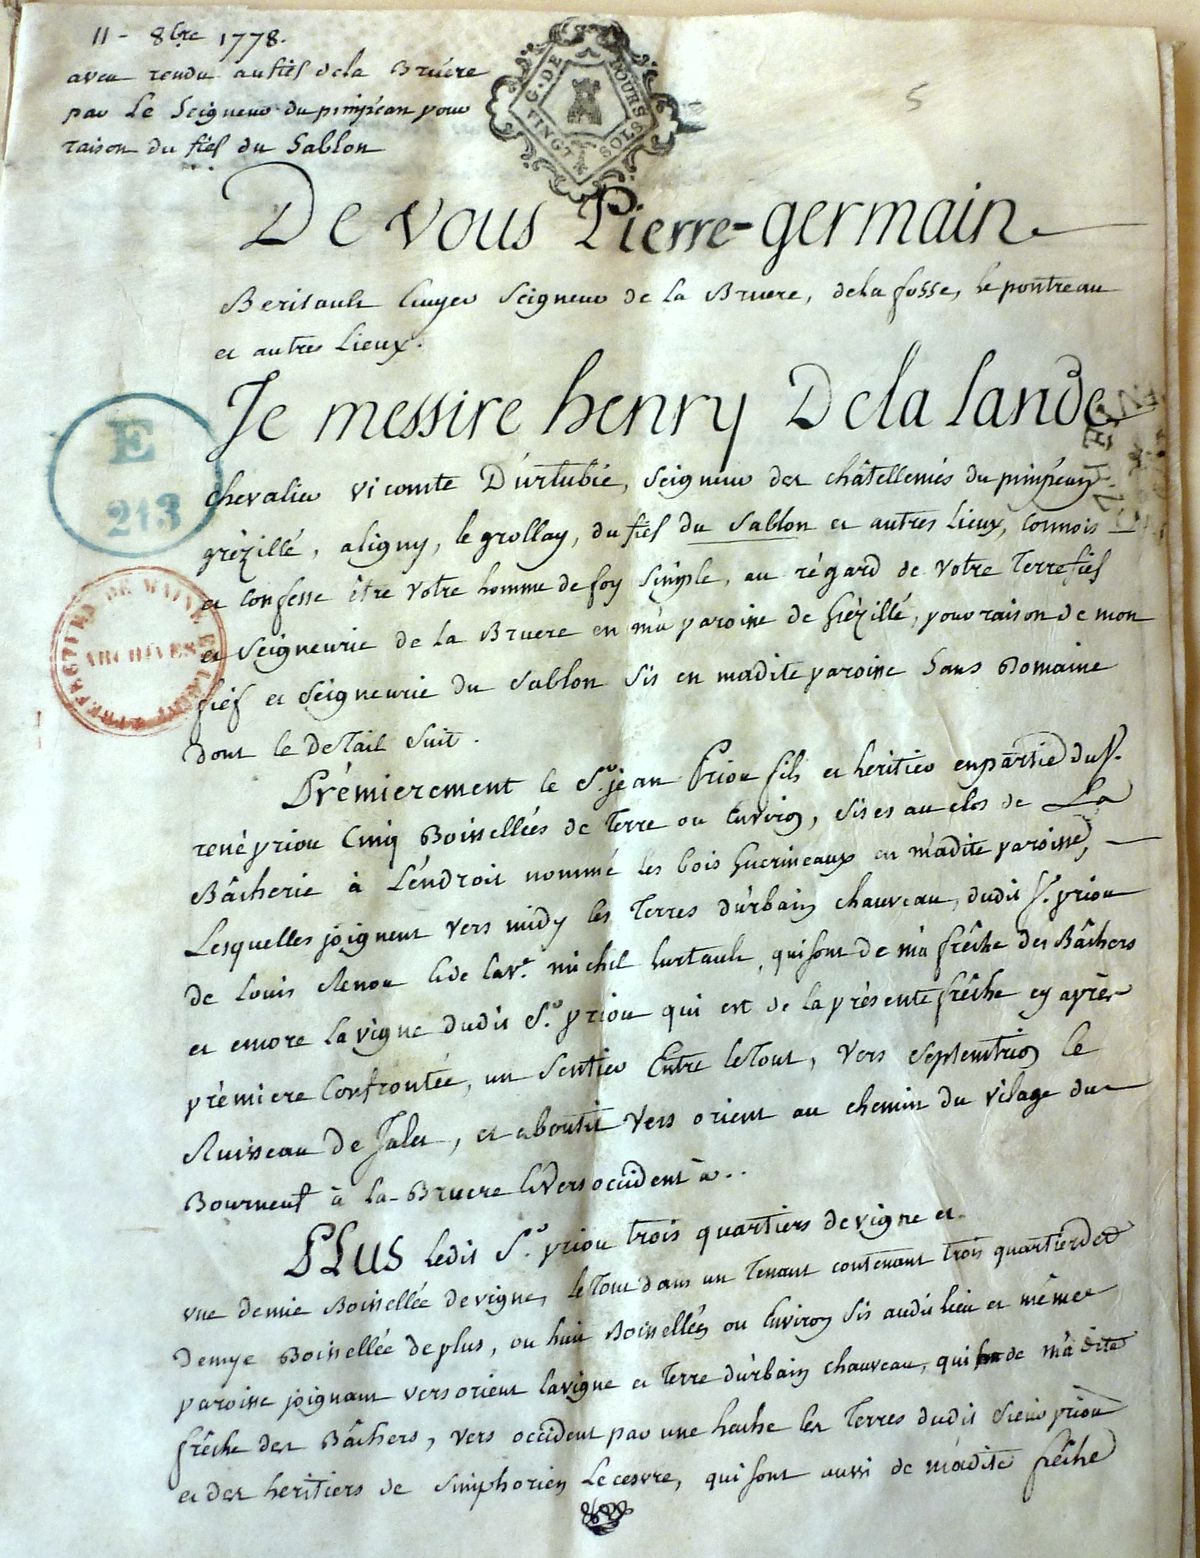 11 - 8bre 1778.
aveu rendu au fief dela Bruere
par Le Seigneur du pimpéan pour
raison du fief du Sablon
G. DE TOURS
VINGT SOLS
5
De vous Pierre-germain
Berisault Ecuyer Seigneur de La Bruere, dela fosse, le pontreau
et autres Lieux.
Je messire henry Dela lande
E
213
chevalier vicomte D'urtubie, Seigneur des châtellenies du pimpéan
grézillé, aligny, le grollay, du fief du Sablon et autres Lieux, Connois
et Confesse être votre homme de foy Simple, au régard de votre Terre fief
PREFECTURE DE MAINE ET LOIRE
ARCHIVES
et Seigneurie de la Bruere en mà paroisse de Grézillé, pour raison de mon
fief et Seigneurie du Sablon Sis en madite paroisse Sans Domaine
dont le deTail Suit.
Prémierement le Sr. jean Priou fils et heritier en partie du Sr.
rené priou Cinq Boissellées de Terre ou Environ, Sises au clos de La
Bâcherie à L'endroit nommé les bois Guerineaux en màdite paroisse,
Lesquelles joignent vers midy les Terres d'urbain chauveau, dudit Sr. priou
de Louis Renou & de la ve. michel hurtault, qui sont de mà frêche des Bâchers
et encore la vigne dudit Sr. priou qui est de la présente frêche cy après
prémiere Confrontée, un Sentier Entre leTout, vers Septentrion le
Ruisseau de Jalu, et aboutit vers orient au chemin du vilage du
Bourneuf à la Bruere & vers occident à..
PLUS ledit Sr. priou trois quartiers de vigne et
une demie Boissellée de vigne, le Tout dans un Tenant contenant trois quartiers et
demye Boissellée de plus, ou huit Boissellées ou Environ Sis audit lieu et même
paroisse joignant vers orient la vigne et Terre d'urbain chauveau, qui de màdite
frêche des Bâchers, vers occident par une hache les Terres dudit Sieur priou
et des heritiers de Simphorien Lecesvre, qui sont aussi de màdite frêche